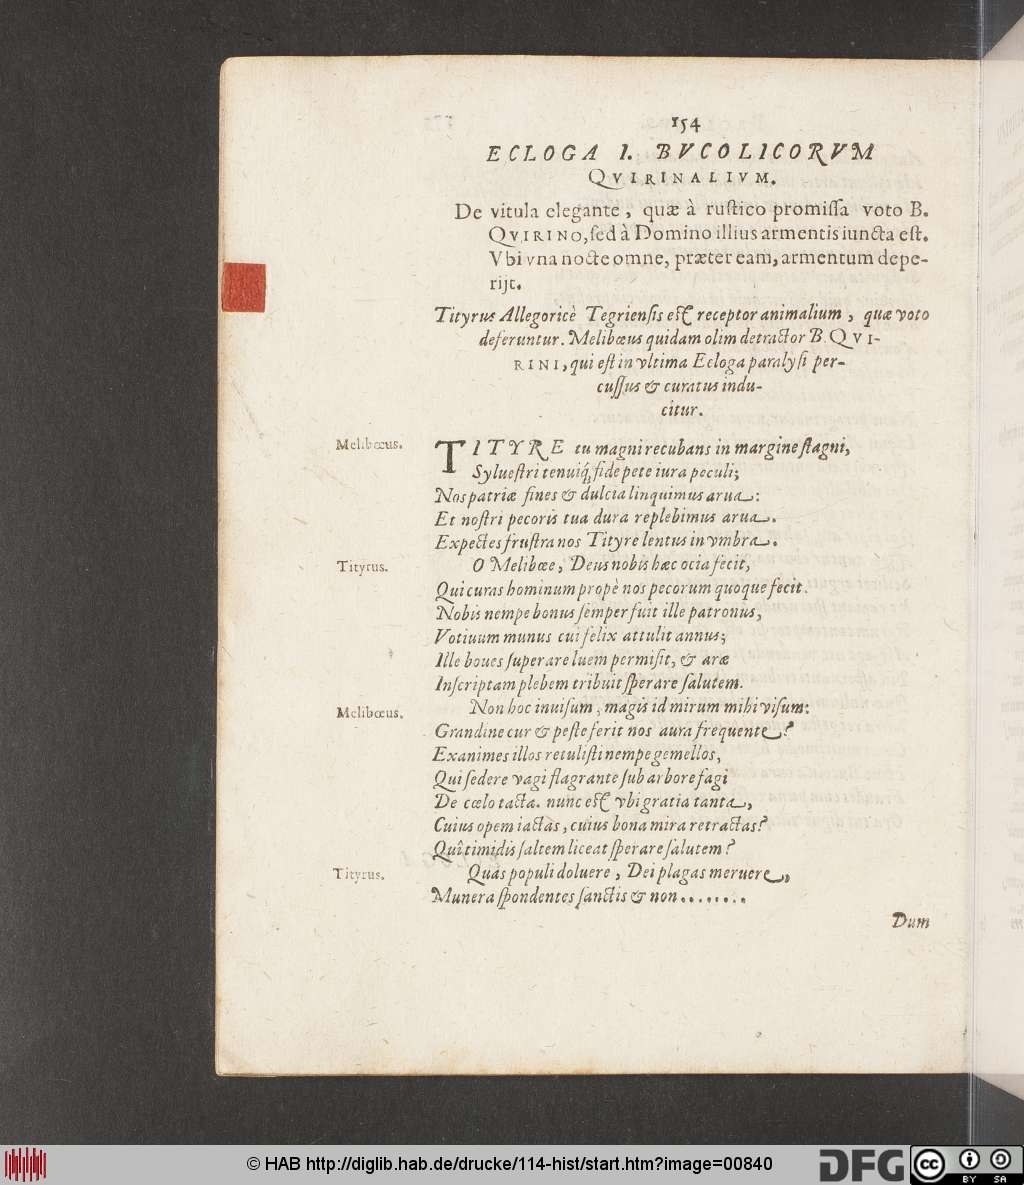 154
ECLOGA I. BVCOLICORVM
QVIRINALIVM.
De vitula elegante, quæ à rustico promissa voto B.
QVIRINO, sed à Domino illius armentis iuncta est.
Vbi vna nocte omne, præter eam, armentum depe-
rijt.
Tityrus Allegoricè Tegriensis est receptor animalium, quæ voto
deferuntur. Melibœus quidam olim detractor B. QVI-
RINI, qui est in vltima Ecloga paralysi per-
cussus & curatus indu-
citur.
Melibœus. TITYRE tu magni recubans in margine stagni,
Syluestri tenuiq́; fide pete iura peculi;
Nos patriæ fines & dulcia linquimus arua:
Et nostri pecoris tua dura replebimus arua.
Expectes frustra nos Tityre lentus in vmbra.
Tityrus. O Melibœe, Deus nobis hæc ocia fecit,
Qui curas hominum propè nos pecorum quoque fecit.
Nobis nempe bonus semper fuit ille patronus,
Votiuum munus cui felix attulit annus;
Ille boues superare luem permisit, & aræ
Inscriptam plebem tribuit sperare salutem.
Melibœus. Non hoc inuisum, magis id mirum mihi visum:
Grandine cur & peste ferit nos aura frequente?
Exanimes illos retulisti nempe gemellos,
Qui sedere vagi flagrante sub arbore fagi
De cœlo tacta. nunc est vbi gratia tanta,
Cuius opem iactas, cuius bona mira retractas?
Quî timidis saltem liceat sperare salutem?
Tityrus. Quas populi doluere, Dei plagas meruere,
Munera spondentes sanctis & non........
Dum
© HAB http://diglib.hab.de/drucke/114-hist/start.htm?image=00840
DFG
cc
BY SA